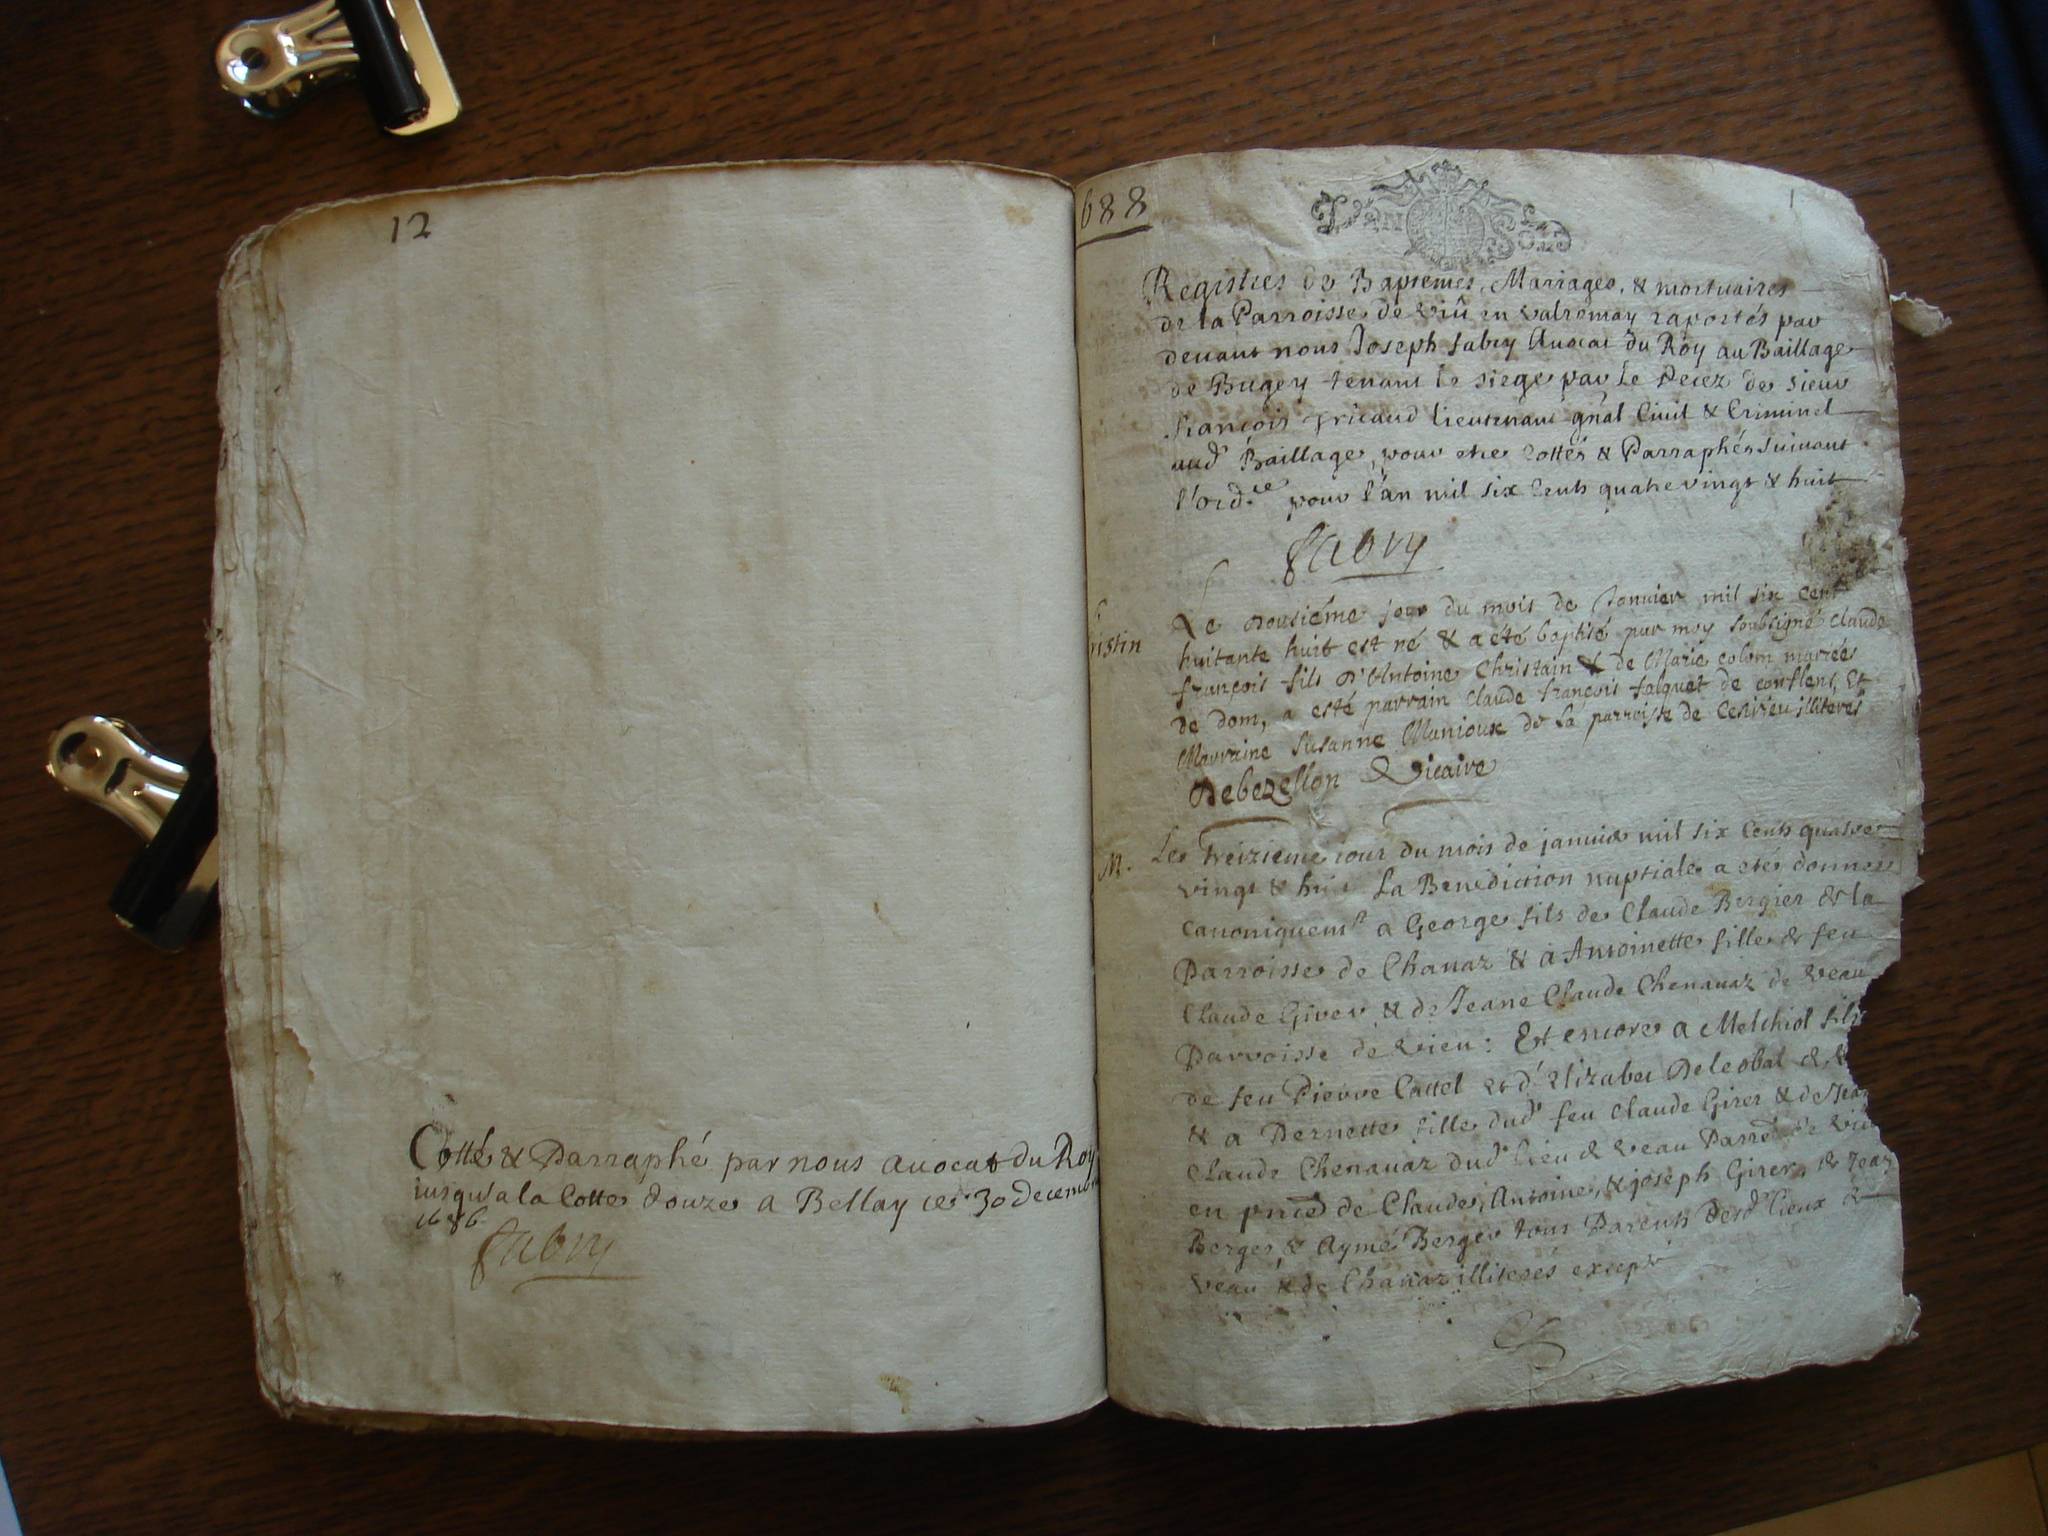 12
Cotté & Parraphé par nous avocat du Roy
iusqu'a la Cotte douze a Bellay ce 30 decemb
1686
fabry
688
1
Registres de Baptemes, Mariages, & mortuaires
de la Parroisse de viû en valromay raportés par
devant nous Joseph fabry Avocat du Roy au Baillage
de Bugey tenant le siege par le decez de sieur
françois tricaud lieutenant gñal Civil & Criminel
aud Baillage, pour etre cottés & Parraphés suivant
l'ord.ce pour l'an mil six cents quatrevingt & huit
fabry
ristin
Le dousiéme jour du mois de Janvier mil six cent
huitante huit est né & a été baptisé par moy soubsigné Claude
françois fils d'Antoine Christain & de Marie colom mariés
de dom, a esté parrain Claude françois falquet de conflens, Et
Marraine Susanne Manioux de la parroisse de illiterés
Debezellon Vicaire
M.
Le Treizieme iour du mois de janvier mil six Cents quatre
vingt & hui La Benediction nuptiale a eté donnee
Canoniquemt a George fils de Claude Bergier de la
Parroisse de Chavaz & à Antoinette fille de feu
Claude Girer & de Jeane Claude Chenavaz de veau
Parroisse de vieu: Et encore a Melchiol fils
de feu Pierre Cattel et d' Elizabet Deleobal de
& a Pernette fille dud feu Claude Girer & de Jean
Claude Chenavaz dud lieu de veau Parre de viu
en pnce de Claude, Antoine, & joseph Girer, de Jean
Berger & Aymé Berger tous Parents desd lieux de
veau & de Chavaz illiterés excepté